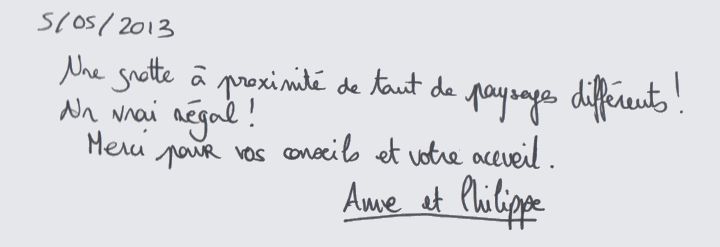 5/05/2013
Une grotte à proximité de tant de paysages différents !
Un vrai régal !
Merci pour vos conseils et votre accueil.
Anne et Philippe